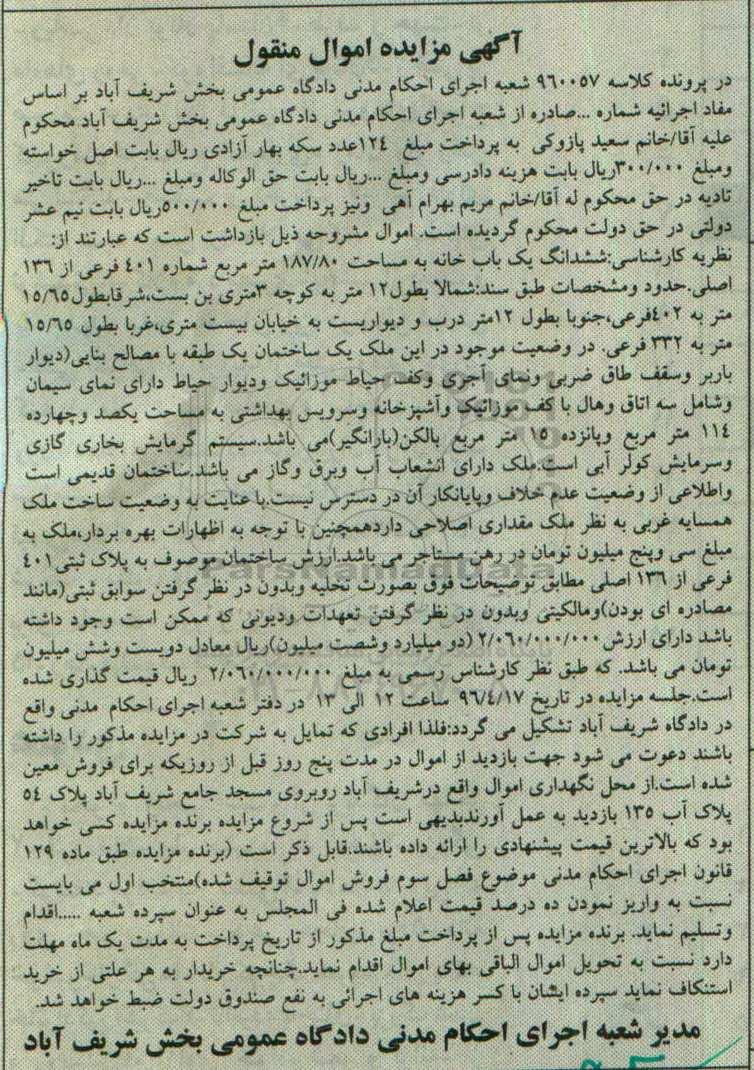 آگهی مزایده اموال منقول
در پرونده کلاسه ۹۶۰۰۵۷ شعبه اجرای احکام مدنی دادگاه عمومی بخش شریف آباد بر اساس
مفاد اجرائیه شماره ...صادره از شعبه اجرای احکام مدنی دادگاه عمومی بخش شریف آباد محکوم
علیه آقا/خانم سعید پازوکی به پرداخت مبلغ ۱۲٤عدد سکه بهار آزادی ریال بابت اصل خواسته
ومبلغ ۳۰۰/۰۰۰ریال بابت هزینه دادرسی ومبلغ ...ریال بابت حق الوکاله ومبلغ ...ریال بابت تاخیر
تادیه در حق محکوم له آقا/خانم مریم بهرام آهی ونیز پرداخت مبلغ ۵۰۰/۰۰۰ریال بابت نیم عشر
دولتی در حق دولت محکوم گردیده است. اموال مشروحه ذیل بازداشت است که عبارتند از:
نظریه کارشناسی:ششدانگ یک باب خانه به مساحت ۱۸۷/۸۰ متر مربع شماره ٤۰۱ فرعی از ۱۳٦
اصلی.حدود ومشخصات طبق سند:شمالا بطول۱۲ متر به کوچه ۳متری بن بست،شرقابطول۱۵/٦۵
متر به ٤۰۲فرعی،جنوبا بطول ۱۲متر درب و دیواریست به خیابان بیست متری،غربا بطول ۱۵/٦۵
متر به ۳۳۲ فرعی. در وضعیت موجود در این ملک یک ساختمان یک طبقه با مصالح بنایی(دیوار
باربر وسقف طاق ضربی ونمای آجری وکف حیاط موزائیک ودیوار حیاط دارای نمای سیمان
وشامل سه اتاق وهال با کف موزائیک وآشپزخانه وسرویس بهداشتی به مساحت یکصد وچهارده
۱۱٤ متر مربع وپانزده ۱۵ متر مربع بالکن(بارانگیر)می باشد.سیستم گرمایش بخاری گازی
وسرمایش کولر آبی است.ملک دارای انشعاب آب وبرق وگاز می باشد.ساختمان قدیمی است
واطلاعی از وضعیت عدم خلاف وپایانکار آن در دسترس نیست.با عنایت به وضعیت ساخت ملک
همسایه غربی به نظر ملک مقداری اصلاحی داردهمچنین با توجه به اظهارات بهره بردار،ملک به
مبلغ سی وپنج میلیون تومان در رهن مستاجر می باشد.ارزش ساختمان موصوف به پلاک ثبتی٤۰۱
فرعی از ۱۳٦ اصلی مطابق توضیحات فوق بصورت تخلیه وبدون در نظر گرفتن سوابق ثبتی(مانند
مصادره ای بودن)ومالکیتی وبدون در نظر گرفتن تعهدات ودیونی که ممکن است وجود داشته
باشد دارای ارزش ۲/۰٦۰/۰۰۰/۰۰۰ (دو میلیارد وشصت میلیون)ریال معادل دویست وشش میلیون
تومان می باشد. که طبق نظر کارشناس رسمی به مبلغ ۲/۰٦۰/۰۰۰/۰۰۰ ریال قیمت گذاری شده
است.جلسه مزایده در تاریخ ۹٦/٤/۱۷ ساعت ۱۲ الی ۱۳ در دفتر شعبه اجرای احکام مدنی واقع
در دادگاه شریف آباد تشکیل می گردد:فلذا افرادی که تمایل به شرکت در مزایده مذکور را داشته
باشند دعوت می شود جهت بازدید از اموال در مدت پنج روز قبل از روزیکه برای فروش معین
شده است.از محل نگهداری اموال واقع درشریف آباد روبروی مسجد جامع شریف آباد پلاک ۵٤
پلاک آب ۱۳۵ بازدید به عمل آورندبدیهی است پس از شروع مزایده برنده مزایده کسی خواهد
بود که بالاترین قیمت پیشنهادی را ارائه داده باشند.قابل ذکر است (برنده مزایده طبق ماده ۱۲۹
قانون اجرای احکام مدنی موضوع فصل سوم فروش اموال توقیف شده)منتخب اول می بایست
نسبت به واریز نمودن ده درصد قیمت اعلام شده فی المجلس به عنوان سپرده شعبه .....اقدام
وتسلیم نماید. برنده مزایده پس از پرداخت مبلغ مذکور از تاریخ پرداخت به مدت یک ماه مهلت
دارد نسبت به تحویل اموال الباقی بهای اموال اقدام نماید.چنانچه خریدار به هر علتی از خرید
استنکاف نماید سپرده ایشان با کسر هزینه های اجرائی به نفع صندوق دولت ضبط خواهد شد.
مدیر شعبه اجرای احکام مدنی دادگاه عمومی بخش شریف آباد